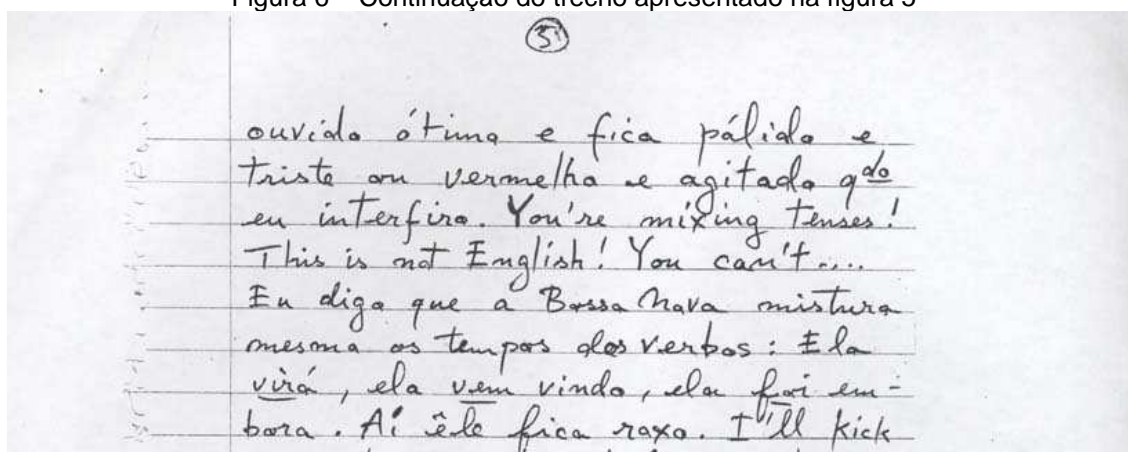 Figura 6 – Continuação do trecho apresentado na figura 5
5
ouvido ótimo e fica pálido e
triste ou vermelho e agitado qdo
eu interfiro. You're mixing tenses!
This is not English! You can't....
Eu digo que a Bossa Nova mistura
mesmo os tempos dos verbos: Ela
virá, ela vem vindo, ela foi em-
bora. Aí êle fica roxo. I'll kick